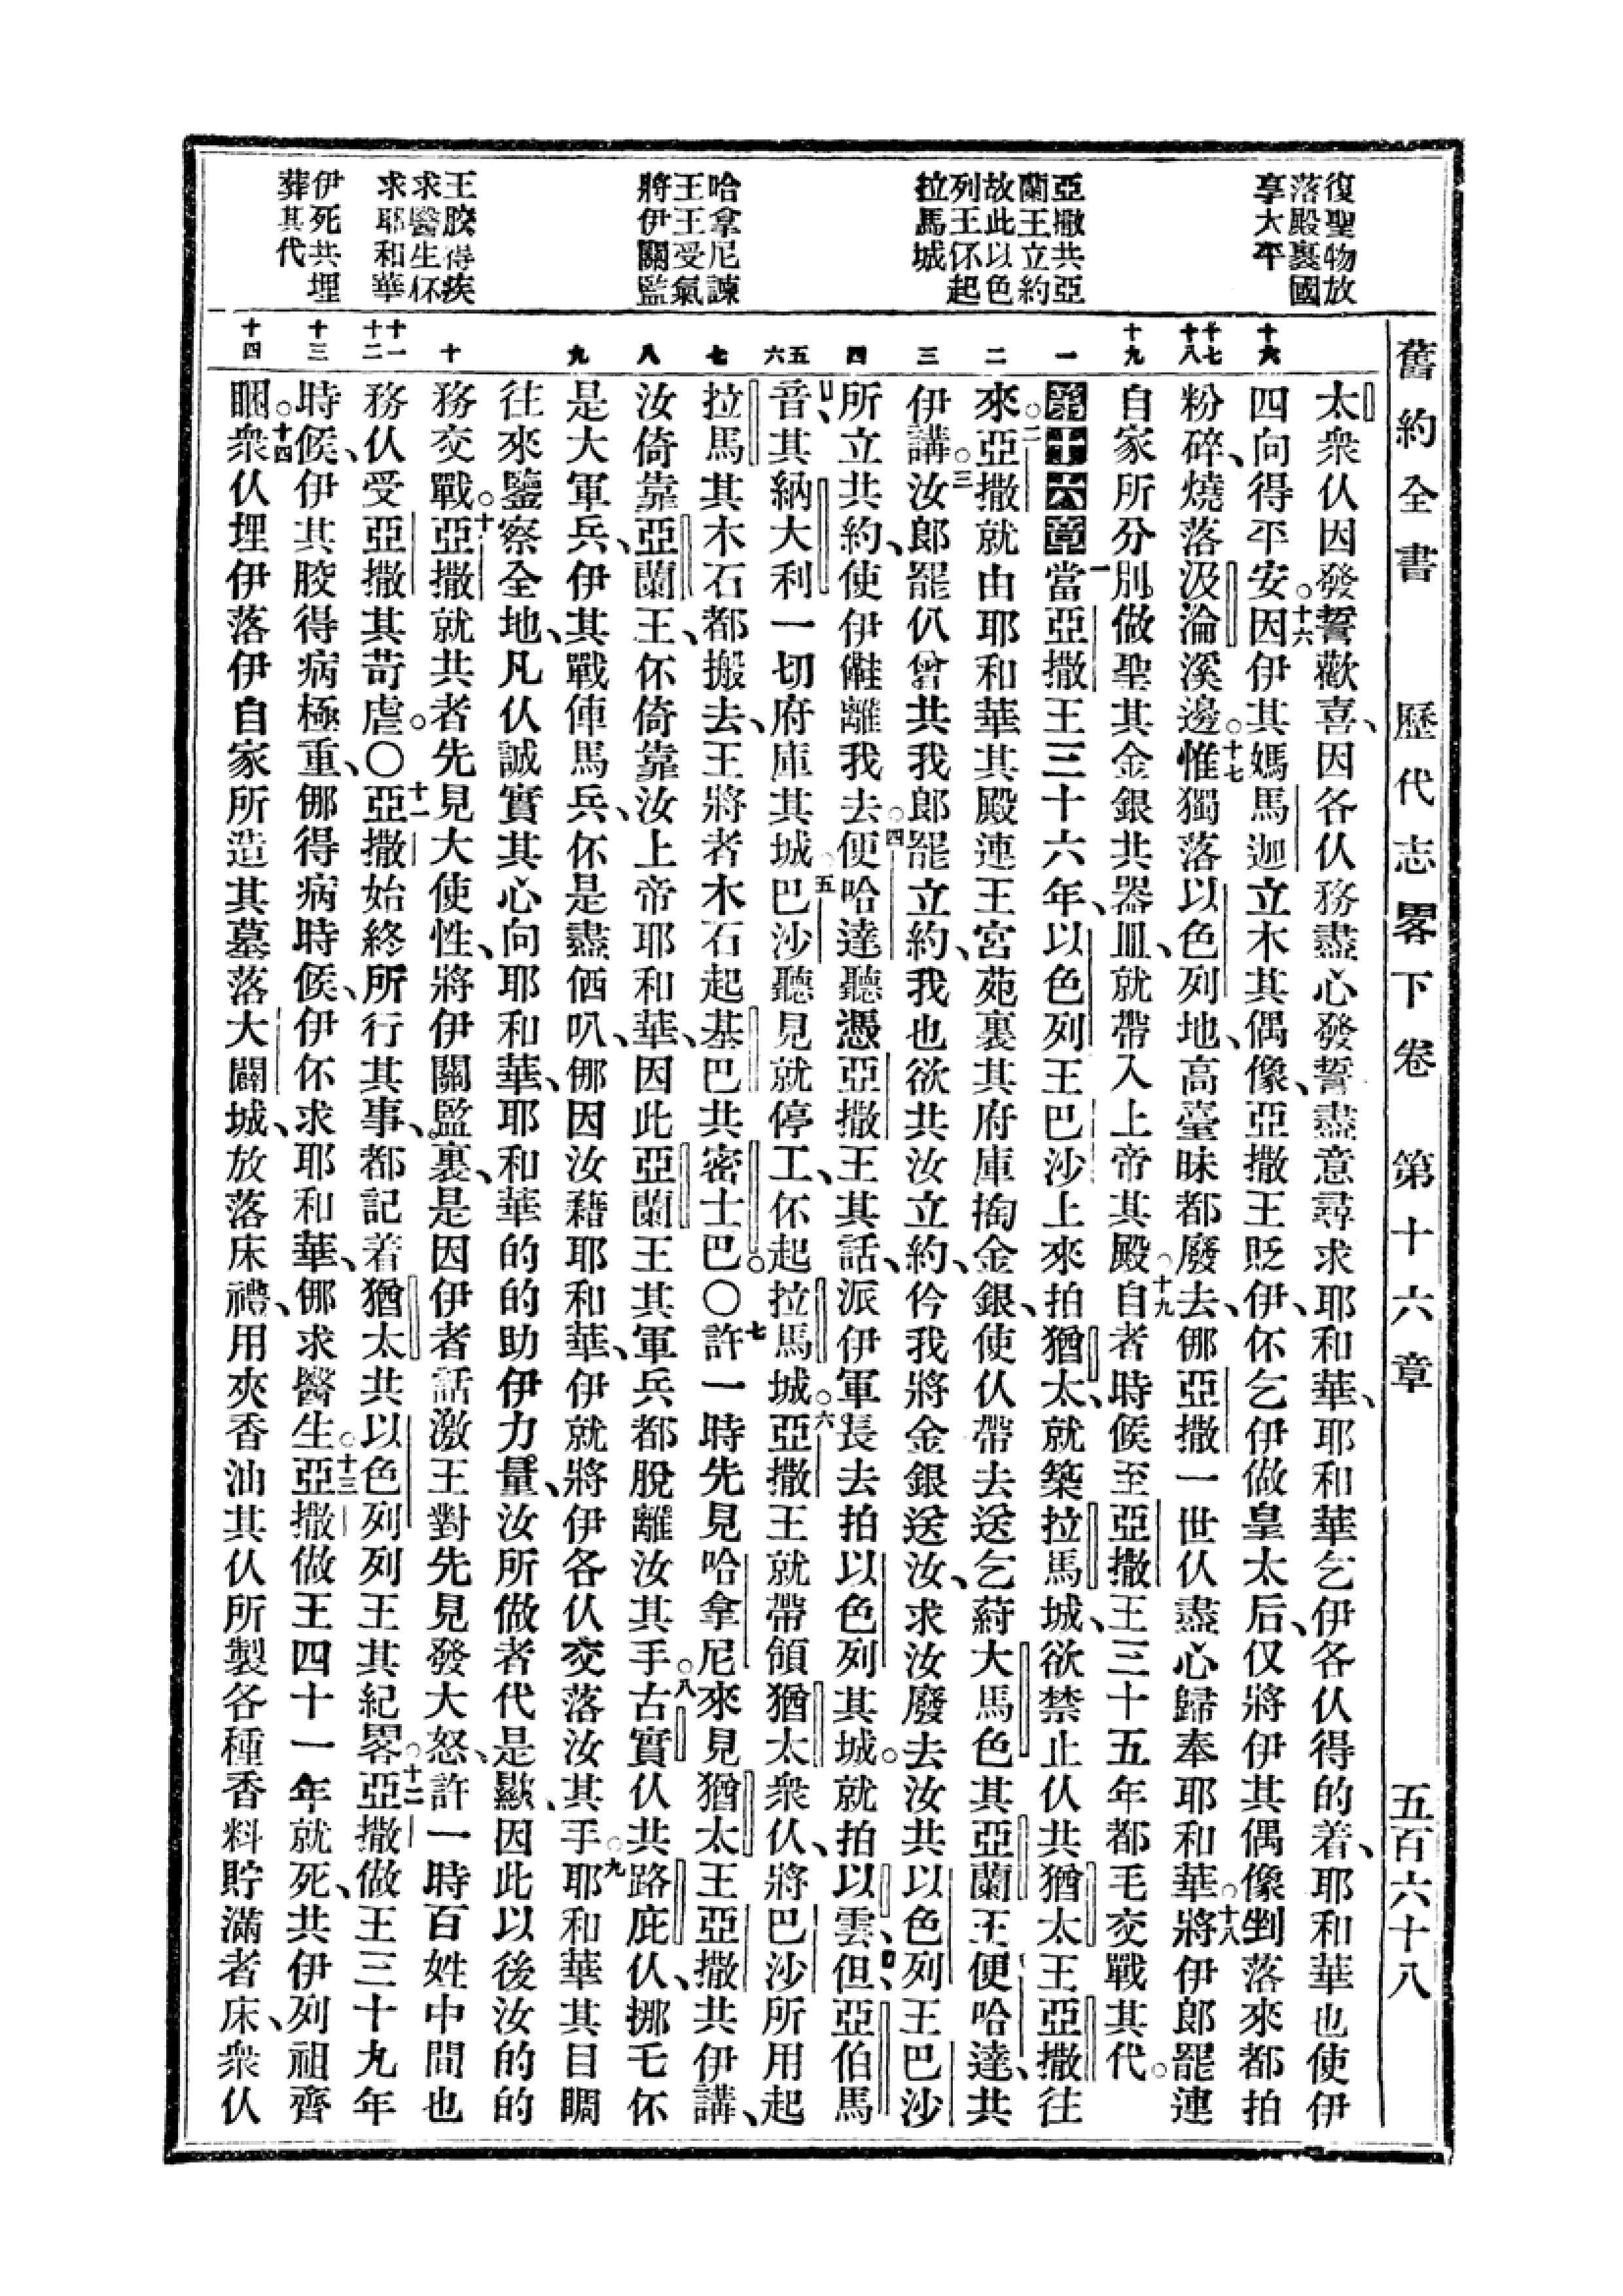 舊約全書 歷代志畧下卷 第十六章 五百六十八
復聖物放
落殿裏國
享太平
亞撒共亞
蘭王立約
故此以色
列王伓起
拉馬城
哈拿尼諫
王王受氣
將伊關監
王骹得疾
求醫生伓
求耶和華
伊死共埋
葬其代
十六
十七
十八
十九
一
二
三
四
五
六
七
八
九
十
十一
十二
十三
十四
太衆仈因發誓歡喜、因各仈務盡心發誓盡意尋求耶和華、耶和華乞伊各仈得的着、耶和華也使伊
四向得平安。十六因伊其媽馬迦立木其偶像、亞撒王貶伊、伓乞伊做皇太后、仅將伊其偶像剉落來都拍
粉碎、燒落汲淪溪邊。十七惟獨落以色列地、高臺昧都廢去、㑚亞撒一世仈盡心歸奉耶和華。十八將伊郎罷連
自家所分別做聖其金銀共器皿、就帶入上帝其殿。十九自者時候至亞撒王三十五年都毛交戰其代。
第十六章 一當亞撒王三十六年、以色列王巴沙上來拍猶太、就築拉馬城、欲禁止仈共猶太王亞撒往
來。二亞撒就由耶和華其殿連王宮苑裏其府庫掏金銀、使仈帶去送乞蒔大馬色其亞蘭王便哈達、共
伊講。三汝郎罷仈曾共我郎罷立約、我也欲共汝立約、伶我將金銀送汝、求汝廢去汝共以色列王巴沙
所立共約、使伊㒲離我去。四便哈達聽憑亞撒王其話、派伊軍長去拍以色列其城。就拍以雲、但、亞伯馬
音其納大利一切府庫其城。五巴沙聽見就停工、伓起拉馬城。六亞撒王就帶領猶太衆仈、將巴沙所用起
拉馬其木石都搬去、王將者木石起基巴共密士巴。〇七許一時先見哈拿尼來見猶太王亞撒共伊講、
汝倚靠亞蘭王、伓倚靠汝上帝耶和華、因此亞蘭王其軍兵都脫離汝其手。八古實仈共路庇仈、挪毛伓
是大軍兵、伊其戰俥馬兵、伓是盡価叭、㑚因汝藉耶和華、伊就將伊各仈交落汝其手。九耶和華其目睭
往來鑒察全地、凡仈誠實其心向耶和華、耶和華的的助伊力量、汝所做者代是顯、因此以後汝的的
務交戰。十亞撒就共者先見大使性、將伊關監裏、是因伊者話激王對先見發大怒、許一時百姓中間也
務仈受亞撒其苛虐。〇十一亞撒始終所行其事、都記着猶太共以色列列王其紀畧。十二亞撒做王三十九年
時候、伊其骹得病極重、㑚得病時候、伊伓求耶和華、㑚求醫生。十三亞撒做王四十一年就死、共伊列祖齊
睏。十四衆仈埋伊落伊自家所造其墓落大闢城、放落床禮、用夾香油其仈所製各種香料貯滿者床、衆仈